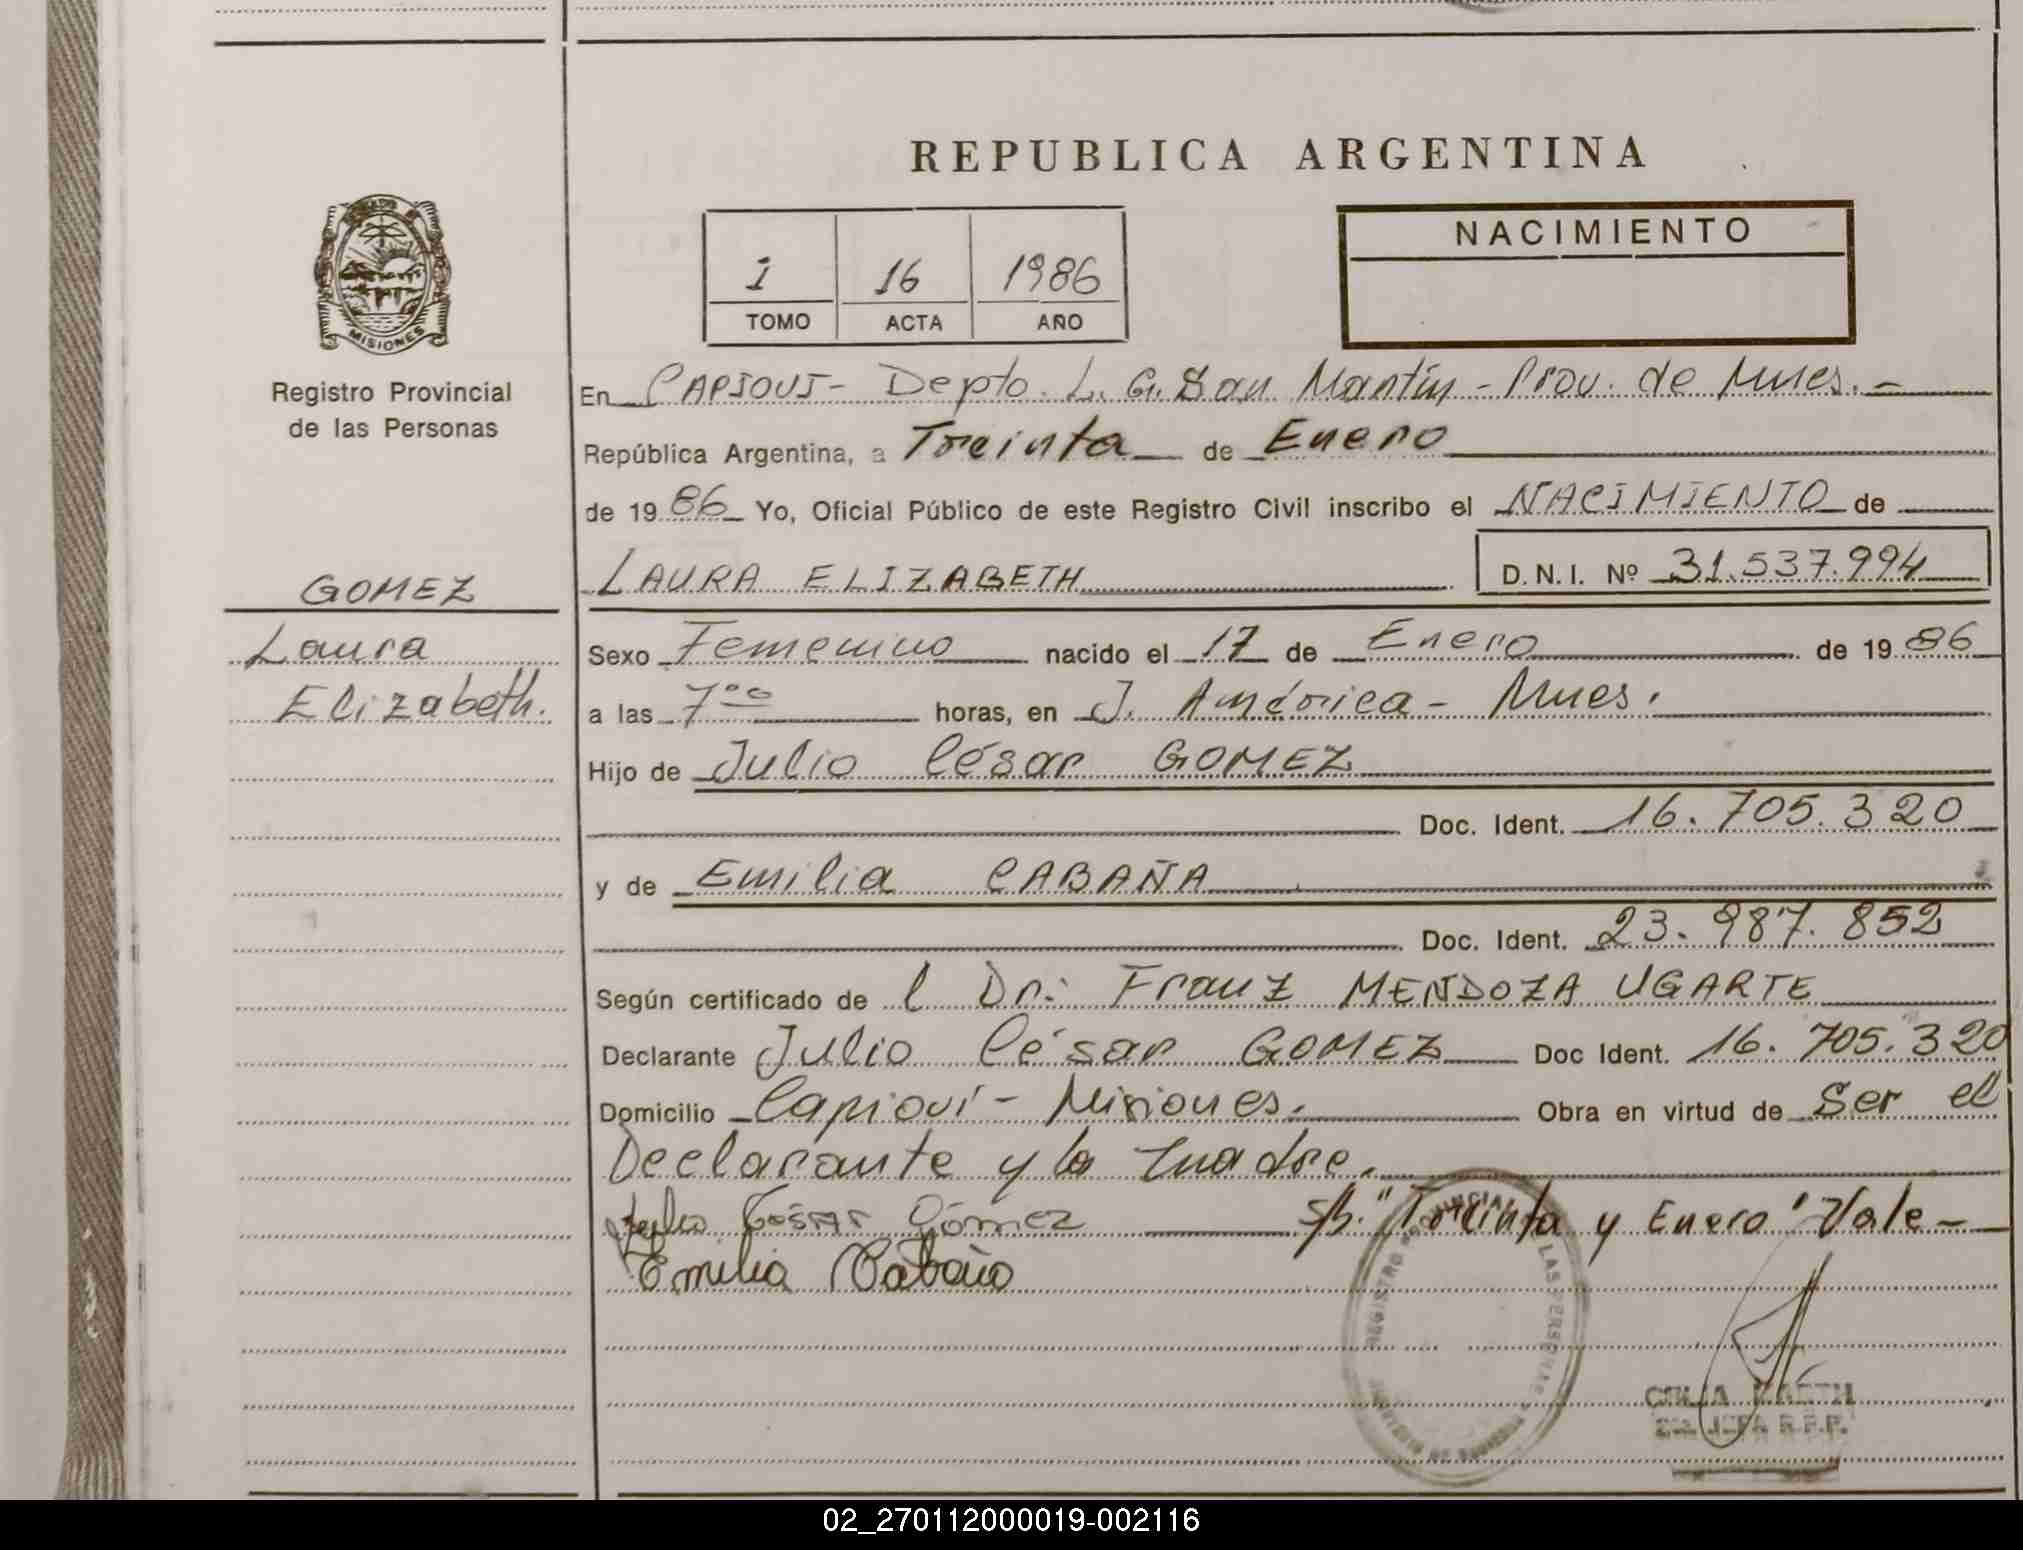 REPUBLICA ARGENTINA
NACIMIENTO
1 16 1986
TOMO ACTA AÑO
MISIONES
Registro Provincial
de las Personas
En CAPIOVI - Depto. L. G. San Martín - Prov. de Mnes. -
República Argentina, a Treinta de Enero
de 1986 Yo, Oficial Público de este Registro Civil inscribo el NACIMIENTO de
LAURA ELIZABETH D.N.I. Nº 31.537.994
GOMEZ
Laura
Elizabeth.
Sexo Femenino nacido el 17 de Enero de 1986
a las 7°° horas, en J. América - Mnes.
Hijo de Julio César GOMEZ
Doc. Ident. 16.705.320
y de Emilia CABAÑA
Doc. Ident. 23.987.852
Según certificado de l Dr: Franz MENDOZA UGARTE
Declarante Julio César GOMEZ Doc Ident. 16.705.320
Domicilio Capioví - Misiones. Obra en virtud de Ser el
Declarante y la madre.
Julio César Gómez S/B. "Treinta y Enero" Vale -
Emilia Cabaña
REGISTRO PROVINCIAL DE LAS PERSONAS
02_270112000019-002116